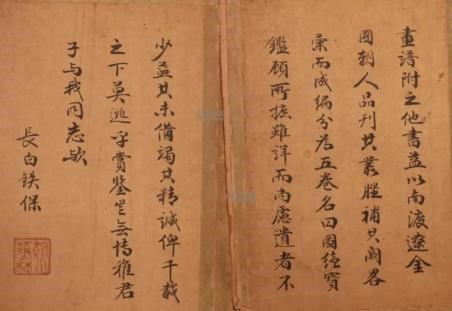 畫譜附之他書益以南渡遼金
國朝人品刊其叢脞補其闕畧
彙而成編分為五卷名曰圖繪寶
鑑顧所摭雖詳而尚慮遺者不
少益其未備竭其精誠俾千載
之下莫逃乎賞鑒是無博雅君
子与我同志歟
長白鉄保